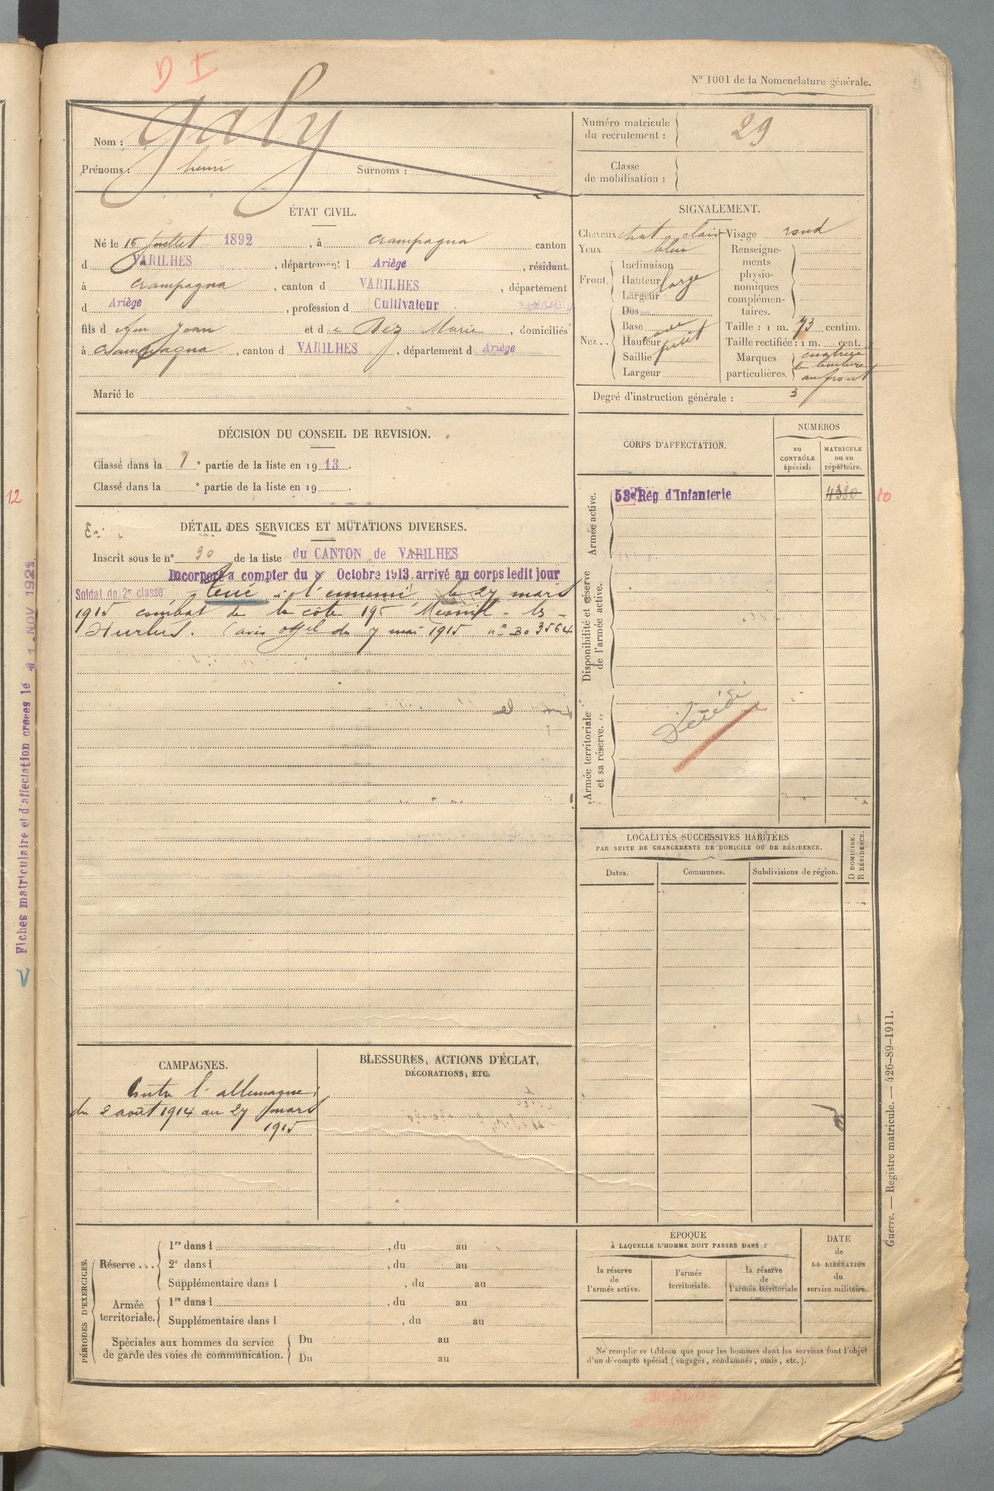 D I
N° 1001 de la Nomenclature générale.
Nom : Galy
Prénoms : henri Surnoms :
Numéro matricule du recrutement : 29
Classe de mobilisation :
ÉTAT CIVIL.
Né le 15 Juillet 1892, à Crampagna canton
d VARILHES, département d Ariège, résidant
à Crampagna, canton d VARILHES, département
d Ariège, profession d Cultivateur
fils d feu Jean et d e Dez Marie, domiciliés
à Crampagna, canton d VARILHES, département d Ariège
Marié le
SIGNALEMENT.
Cheveux chat. clair Visage rond
Yeux bleu
Renseignements physionomiques complémentaires.
Front. Inclinaison
Hauteur large
Largeur
Nez.. Dos
Base
Hauteur
Saillie petit
Largeur
Taille : 1 m. 73 centim.
Taille rectifiée : 1 m. cent.
Marques particulières. cicatrice
au front
Degré d'instruction générale : 3
DÉCISION DU CONSEIL DE REVISION.
Classé dans la 1e partie de la liste en 1913.
Classé dans la e partie de la liste en 19
CORPS D'AFFECTATION.
NUMÉROS
au CONTRÔLE spécial.
MATRICULE ou au répertoire.
Armée active.
53e Rég d'Infanterie 4380
10
12
Disponibilité et réserve de l'armée active.
Armée territoriale et sa réserve.
Décédé
DÉTAIL DES SERVICES ET MUTATIONS DIVERSES.
Inscrit sous le n° 30 de la liste du CANTON de VARILHES
Incorporé à compter du 8 Octobre 1913 arrivé au corps ledit jour
Soldat de 2e classe Tué à l'ennemi le 27 mars
1915 combat de la côte 195 Mesnil-les-
Hurlus. (avis offel du 7 mai 1915 n° 303564
Fiches matriculaire et d'affectation créées le 1 NOV 192
V
LOCALITÉS SUCCESSIVES HABITÉES
PAR SUITE DE CHANGEMENTS DE DOMICILE OU DE RÉSIDENCE.
Dates. Communes. Subdivisions de région. D DOMICILE. R RÉSIDENCE.
CAMPAGNES.
Contre l'allemagne
du 2 août 1914 au 27 mars
1915
BLESSURES, ACTIONS D'ÉCLAT,
DÉCORATIONS, ETC.
PÉRIODES D'EXERCICES.
Réserve ... 1re dans l , du au
2e dans l , du au
Supplémentaire dans l , du au
Armée territoriale. 1re dans l , du au
Supplémentaire dans l , du au
Spéciales aux hommes du service de garde des voies de communication. Du au
Du au
ÉPOQUE
À LAQUELLE L'HOMME DOIT PASSER DANS :
la réserve de l'armée active.
l'armée territoriale.
la réserve de l'armée territoriale
DATE de LA LIBÉRATION du service militaire.
Ne remplir ce tableau que pour les hommes dont les services font l'objet
d'un décompte spécial (engagés, condamnés, omis, etc.).
Guerre. — Registre matricule. — 426-89-1911.